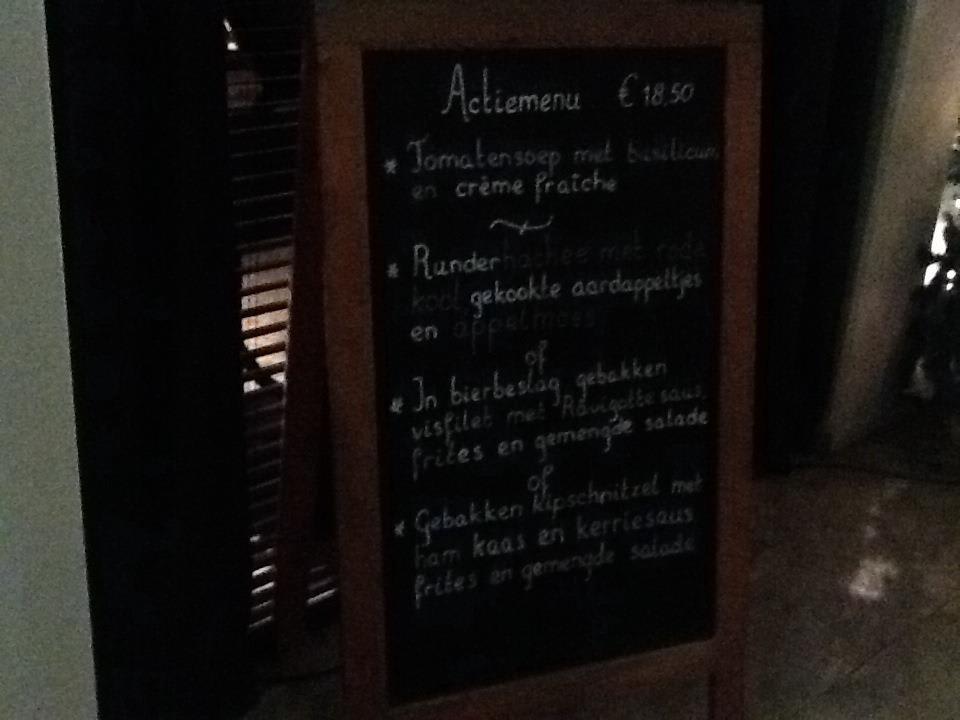 Actiemenu € 18,50
* Tomatensoep met basilicum
en crème fraîche
* Runderhachee met rode
kool gekookte aardappeltjes
en appelmoes
of
* In bierbeslag gebakken
visfilet met Ravigotte saus,
frites en gemengde salade
of
* Gebakken kipschnitzel met
ham kaas en kerriesaus
frites en gemengde salade